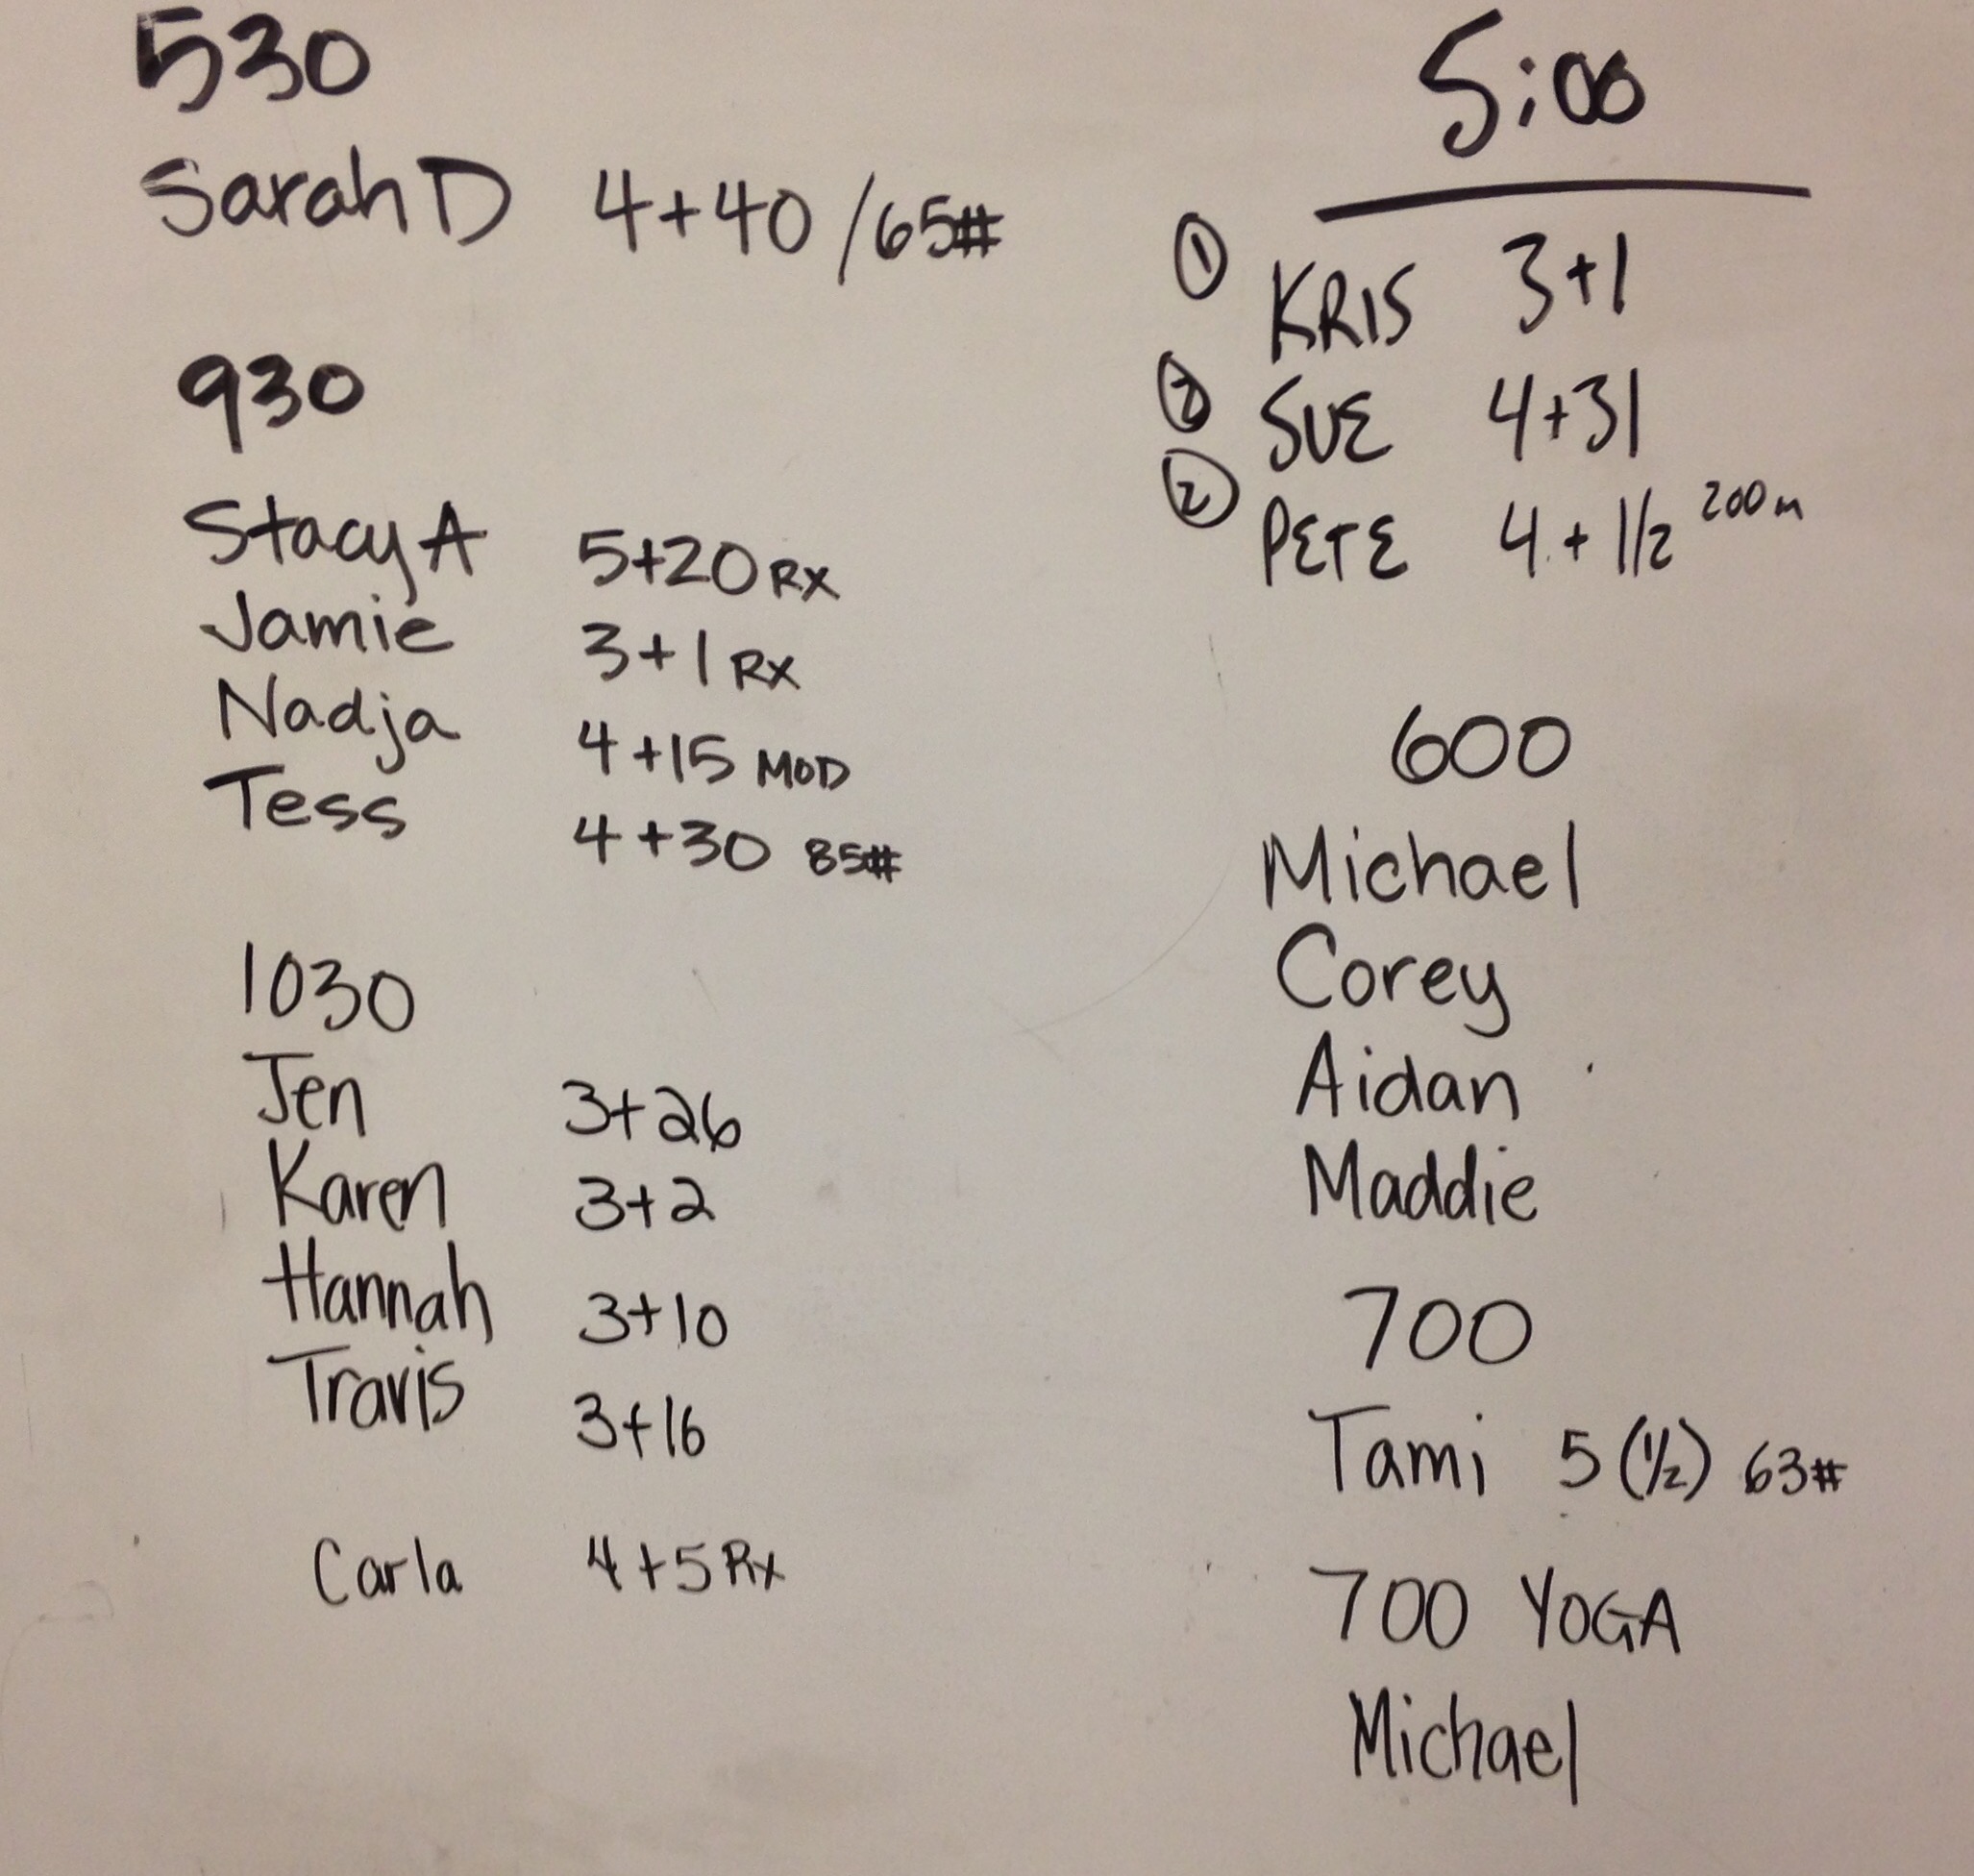 530
Sarah D 4+40 /65#
930
Stacy A 5+20 RX
Jamie 3+1 RX
Nadja 4+15 MOD
Tess 4+30 85#
1030
Jen 3+26
Karen 3+2
Hannah 3+10
Travis 3+16
Carla 4+5 Rx
5:00
① KRIS 3+1
SUE 4+31
② PETE 4+1/2 200m
600
Michael
Corey
Aidan
Maddie
700
Tami 5 (1/2) 63#
700 YOGA
Michael